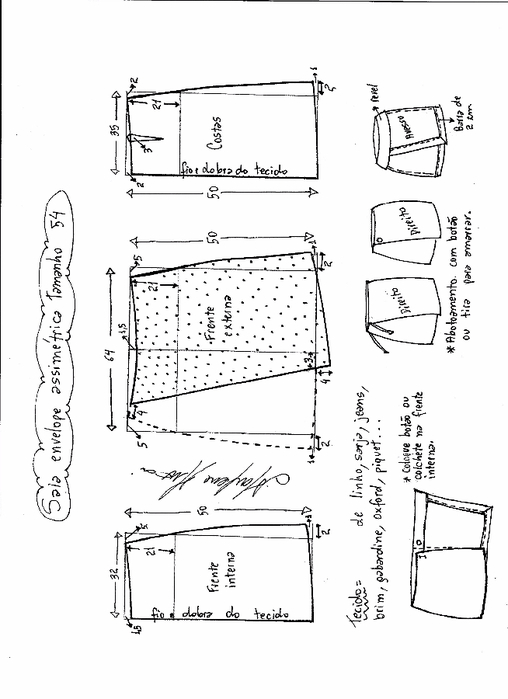 Saia envelope assimétrica Tamanho 54
32
1,5
5
21
50
2
1
Frente
interna
fio e dobra do tecido
64
5
4
1,5
5
21
50
2
1
3
4
2
1
Frente
externa
35
2
3
2
21
50
5
1
Costas
fio e dobra do tecido
Tecido = de linho, sarja, jeans,
brim, gabardine, oxford, piquet...
* Coloque botão ou
colchete na frente
interna.
Direito
Direito
* Abotoamento com botão
ou tira para amarrar.
Avesso
revel
Barra de
2 cm